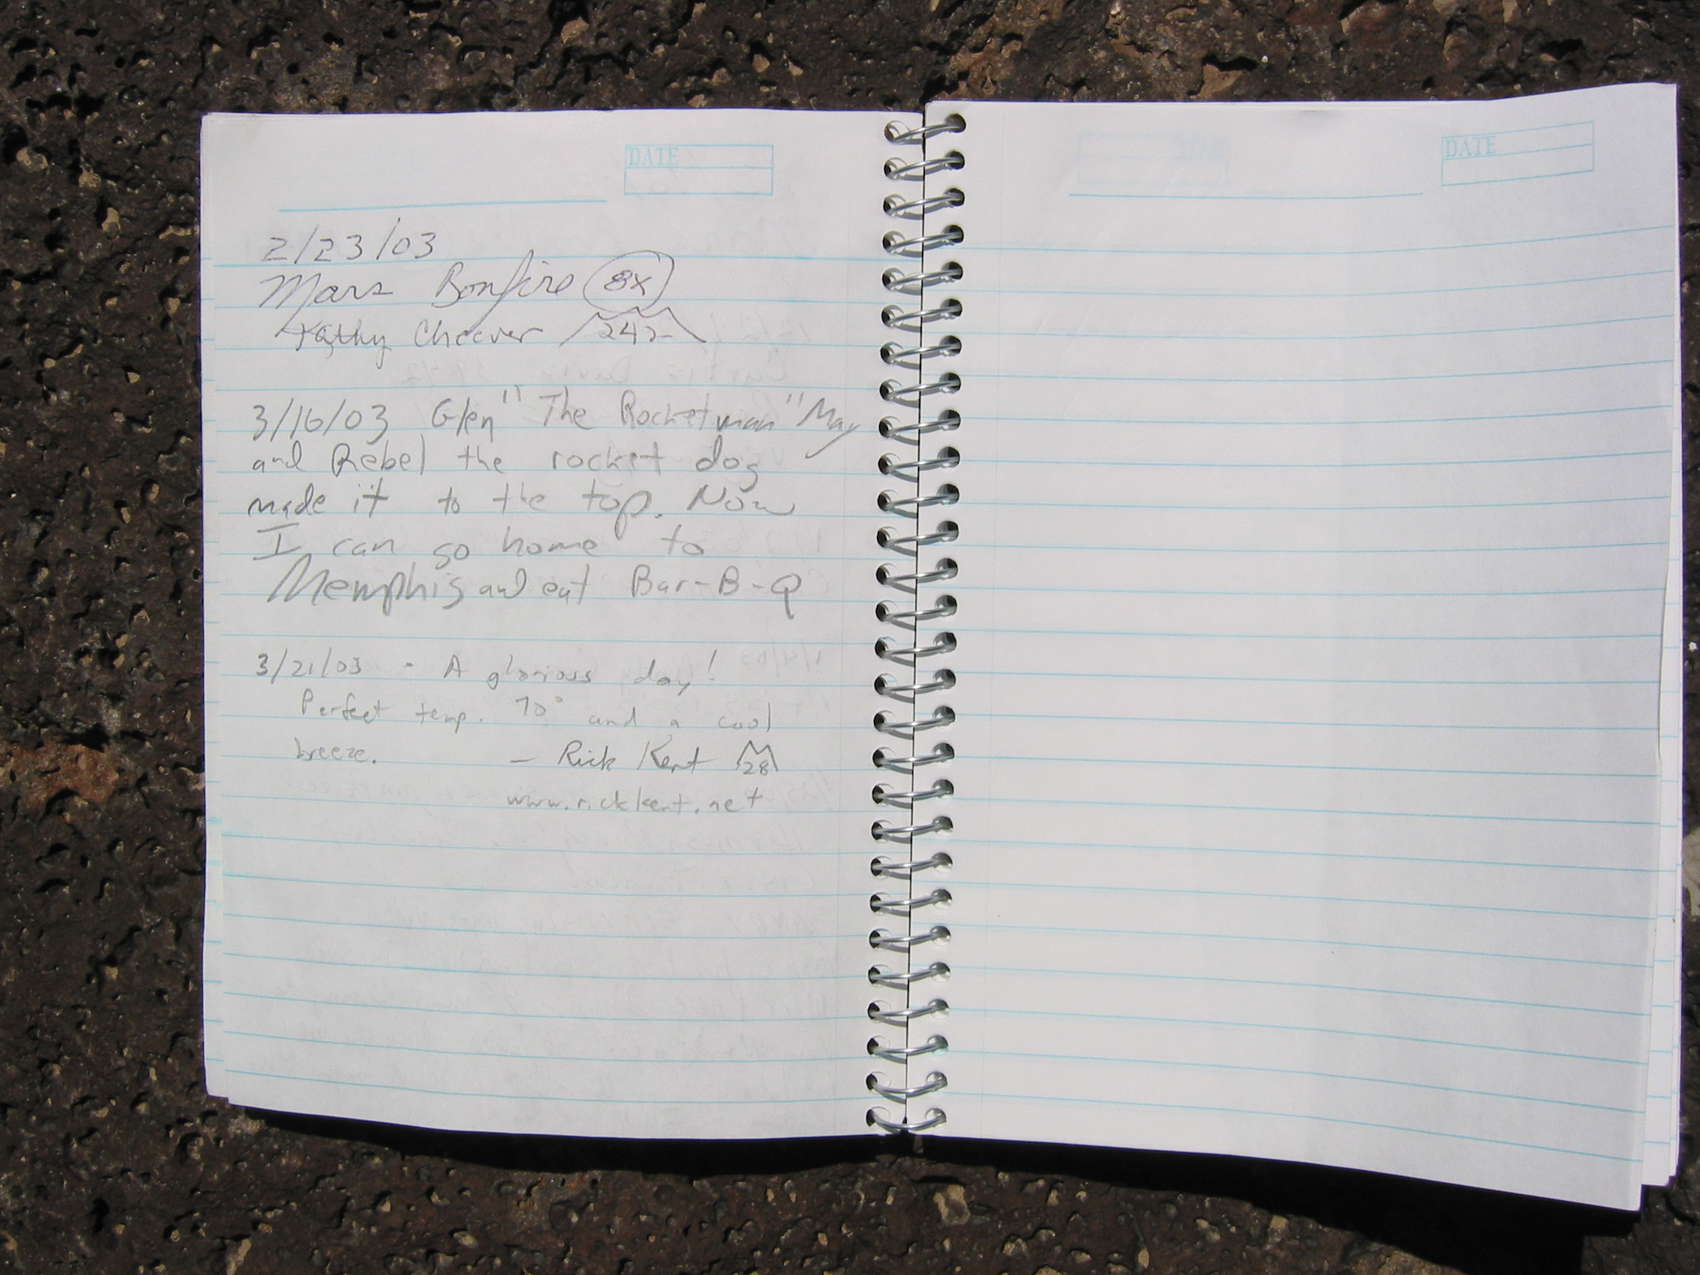 DATE
2/23/03
Mars Bonfire 8x
Kathy Cheever 242
3/16/03 Glen "The Rocketman" May
and Rebel the rocket dog
made it to the top. Now
I can go home to
Memphis and eat Bar-B-Q
3/21/03 - A glorious day!
Perfect temp. 70° and a cool
breeze. - Rick Kent 28
www.rickkent.net
DATE